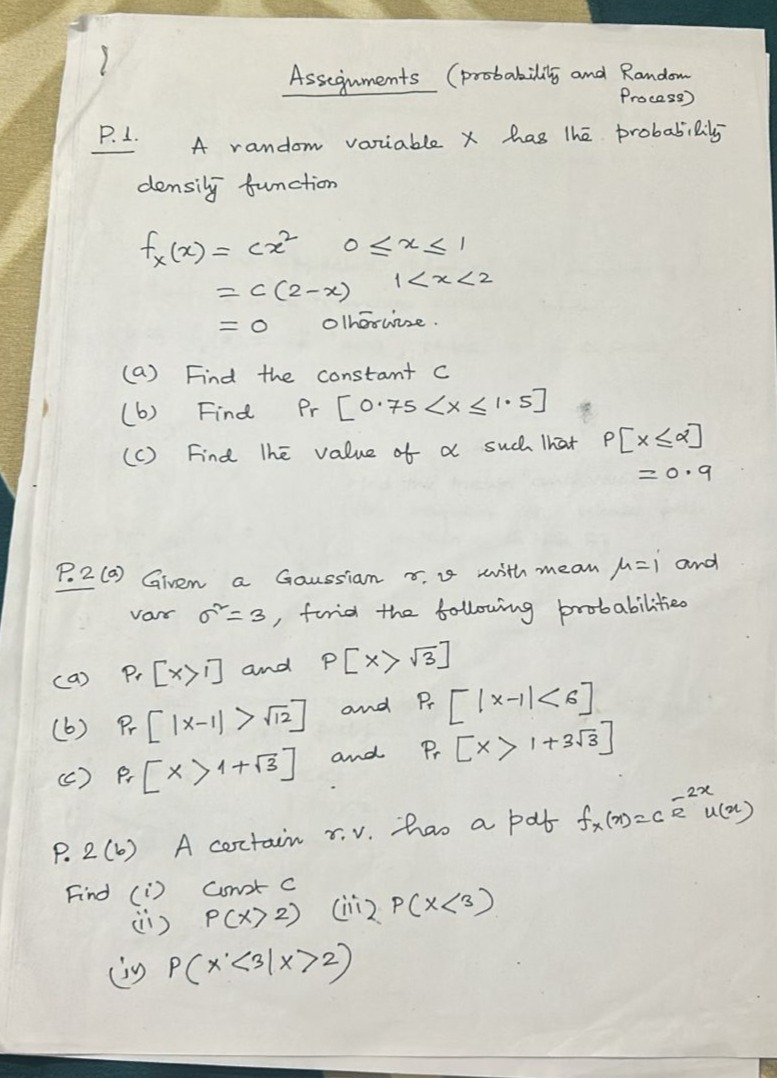 1
Assignments (probability and Random
Process)
P.1. A random variable X has the probability
density function
fₓ(x) = cx² 0 ≤ x ≤ 1
= c(2-x) 1 < x < 2
= 0 otherwise.
(a) Find the constant C
(b) Find Pr [0.75 < x ≤ 1.5]
(c) Find the value of α such that P[x ≤ α]
= 0.9
P.2 (a) Given a Gaussian r.v with mean μ=1 and
var σ²=3, find the following probabilities
(a) Pr [x>1] and P[x > √3]
(b) Pr [|x-1| > √12] and Pr [|x-1| < 6]
(c) Pr [x > 1+√3] and Pr [x > 1+3√3]
P. 2(b) A certain r.v. has a pdf fₓ(x) = c e⁻²ˣ u(x)
Find (i) Const C
(ii) P(x>2) (iii) P(x<3)
(iv) P(x<3|x>2)